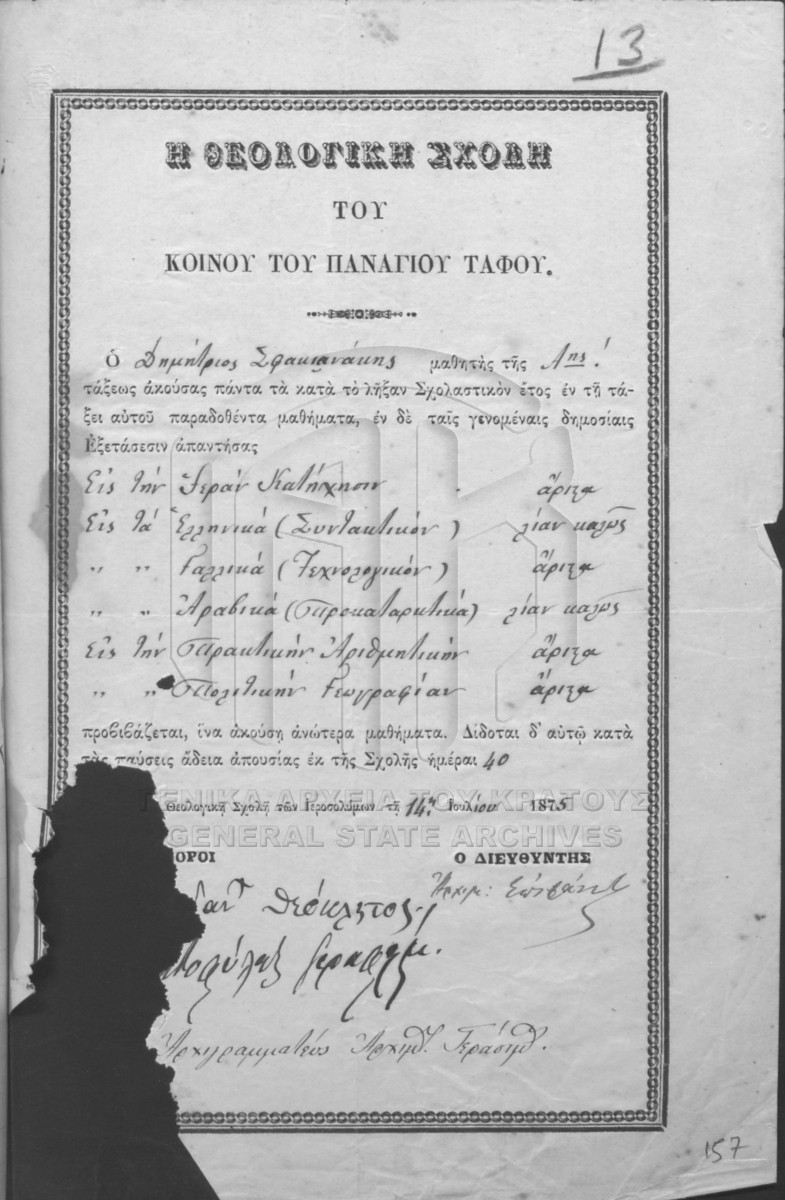 13
Η ΘΕΟΛΟΓΙΚΗ ΣΧΟΛΗ
ΤΟΥ
ΚΟΙΝΟΥ ΤΟΥ ΠΑΝΑΓΙΟΥ ΤΑΦΟΥ.
Ὁ Δημήτριος Σφακιανάκης μαθητὴς τῆς Αης!
τάξεως ἀκούσας πάντα τὰ κατὰ τὸ λῆξαν Σχολαστικὸν ἔτος ἐν τῇ τά-
ξει αὐτοῦ παραδοθέντα μαθήματα, ἐν δὲ ταῖς γενομέναις δημοσίαις
Ἐξετάσεσιν ἀπαντήσας
Εἰς τὴν Ἱερὰν Κατήχησιν ἄριστα
Εἰς τὰ Ἑλληνικά (Συντακτικόν) λίαν καλῶς
„ „ Γαλλικά (Τεχνολογικόν) ἄριστα
„ „ Ἀραβικά (Προκαταρκτικά) λίαν καλῶς
Εἰς τὴν Πρακτικὴν Ἀριθμητικὴν ἄριστα
„ „ Πολιτικὴν Γεωγραφίαν ἄριστα
προβιβάζεται, ἵνα ἀκρύσῃ ἀνώτερα μαθήματα. Δίδοται δ' αὐτῷ κατὰ
τὰς παύσεις ἄδεια ἀπουσίας ἐκ τῆς Σχολῆς ἡμέραι 40
Θεολογικῇ Σχολῇ τῶν Ἱεροσολύμων τῇ 14ῃ Ἰουλίου 1875
ΓΕΝΙΚΑ ΑΡΧΕΙΑ ΤΟΥ ΚΡΑΤΟΥΣ
GENERAL STATE ARCHIVES
ΟΡΟΙ Ο ΔΙΕΥΘΥΝΤΗΣ
Ἀρχιμ: Ἐπιφάνιος
Θεόκλητος
Σεραφείμ.
Ἀρχιγραμματεύς Ἀρχιμ. Γεράσιμος.
157